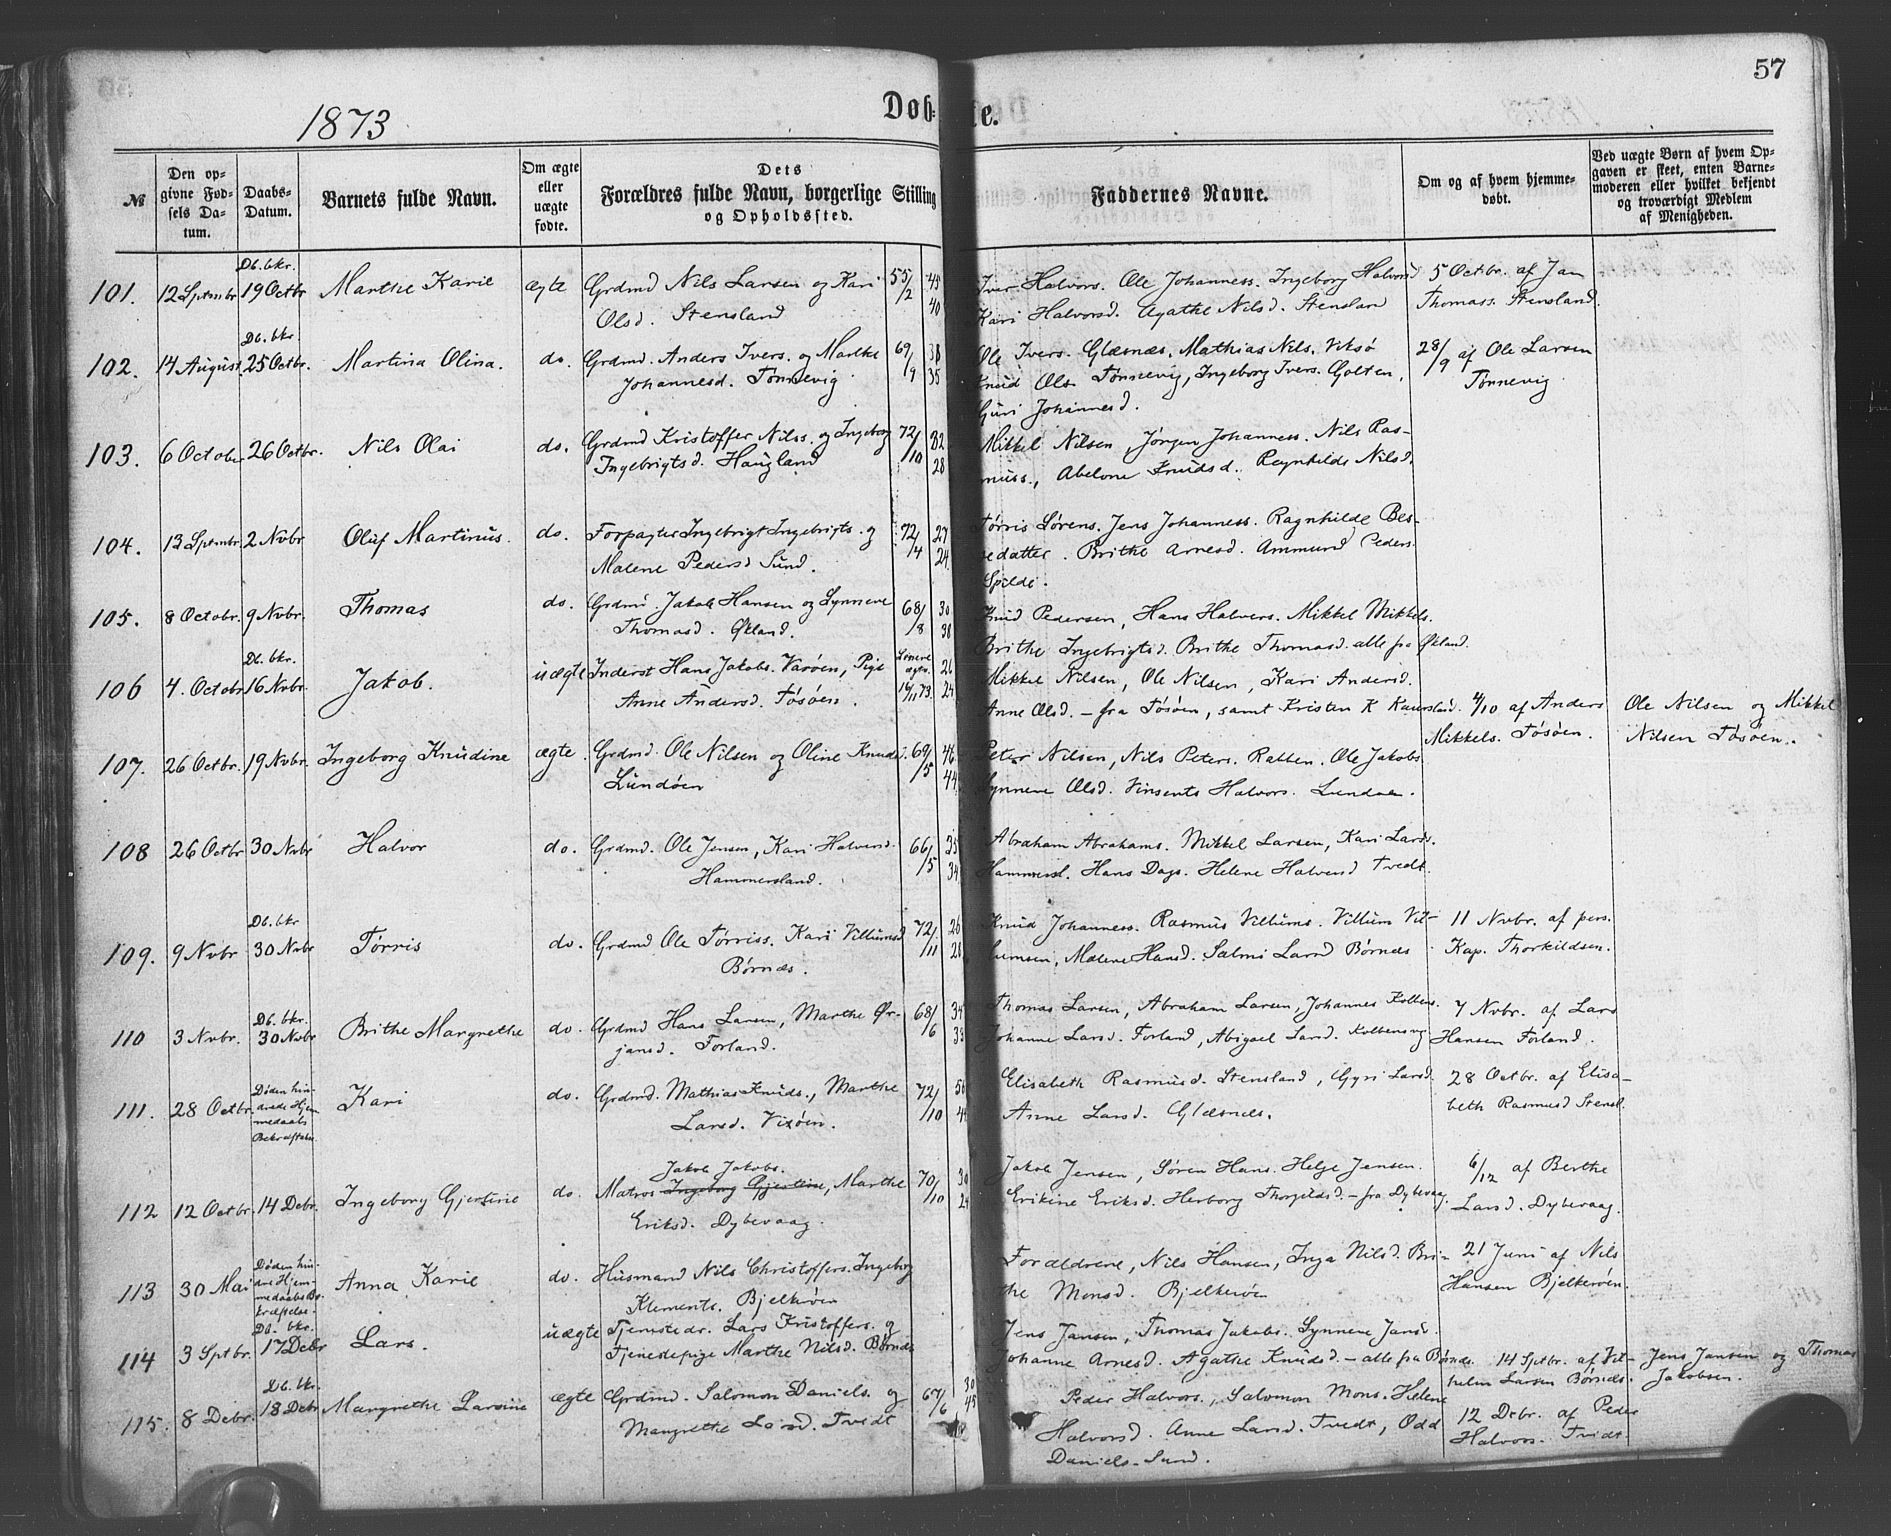 57
1873
Dobte.
№
Den opgivne Fødsels Datum.
Daabs-Datum.
Barnets fulde Navn.
Om ægte eller uægte fødte.
Dets Forældres fulde Navn, borgerlige Stilling og Opholdssted.
Faddernes Navne.
Om og af hvem hjemmedøbt.
Ved uægte Børn af hvem Opgaven er skeet, enten Barnemoderen eller hvilket bekjendt og troværdigt Medlem af Menigheden.
Db. bkr.
101. 12 Septmbr 19 Octbr Marthe Karie ægte Grdmd Nils Larsen og Kari 55/2 45 Iver Halvors. Ole Johanness. Ingeborg Halvorsd 5 Octbr. af Jan
Olsd. Stensland 40 Kari Halvorsd. Agathe Nilsd. Stensland Thomass. Stensland.
Db. bkr.
102. 14 August 25 Octbr. Martina Olina. do. Grdmd. Anders Ivers. og Marthe 69/9 38 Ole Ivers. Glæsnæs, Mathias Nils. Viksø 28/9 af Ole Larsen
Johannesd. Tønnevig 35 Knud Ols. Tønnevig, Ingeborg Ivers. Golten, Tønnevig
Guri Johannesd.
103. 6 October 26 Octbr. Nils Olai do. Grdmd Kristoffer Nilss. og Ingeborg 72/10 32 Mikkel Nilsen, Jørgen Johanness. Nils Ras-
Ingebrigtsd. Haugland 28 muss., Abelone Knudsd. Reynhilde Nilsd.
104. 13 Septmbr. 2 Nvbr Oluf Martinus. do. Forpagter Ingebrigt Ingebrigts. og 72/4 27 Tørris Sørens. Jens Johanness. Ragnhilde Bes-
Malene Pedersd Sund. 24 sedatter. Brithe Arnesd. Ammund Peders.
Spilde.
105. 8 Octobr. 9 Nvbr. Thomas do. Grdmd. Jakob Hansen og Synneve 68/8 30 Knud Pedersen, Hans Halvors. Mikkel Mikkels.
Thomasd. Økland. 38 Brithe Ingebrigtsd. Brithe Thomasd. alle fra Økland.
Db. bkr.
106 4. Octobr 16 Nvbr. Jakob. uægte Inderst Hans Jakobs. Varøen, Pige 26 Mikkel Nilsen, Ole Nilsen, Kari Andersd.
Anne Andersd. Tøsøen. 16/11 73. 24 Anne Olsd. – fra Tøsøen, samt Kristen K 4/10 af Anders Ole Nilsen og Mikkel
Mikkels. Tøsøen. Nilsen Tøsøen.
107. 26 Octbr. 19 Nvbr. Ingeborg Knudine ægte. Grdmd. Ole Nilsen og Oline Knudsd. 69/5 46 Peter Nilsen, Nils Peters. Rabben. Ole Jakobs.
Lundøen 44 Synneve Olsd. Vinsents Halvors. Lundøe.
108 26 Octbr 30 Nvbr Halvor do. Grdmd. Ole Jensen, Kari Halvorsd. 66/5 35 Abraham Abrahams. Mikkel Larsen, Kari Larsd.
Hammersland. 34 Hammersl. Hans Dags. Helene Halvorsd Tvedt.
Db. bkr
109. 9 Nvbr 30 Nvbr Tørris do. Grdmd Ole Tørriss. Kari Villumsd 72/11 26 Knud Johanness. Rasmus Villums. Villum Vil- 11 Nvbr. af pers.
Børnæs. 28 lumsen, Malene Hansd. Salmi Larsd Børnæs Kap. Thorkildsen.
Db. bkr.
110 3 Nvbr. 30 Nvbr Brithe Margrethe do. Grdmd Hans Larsen, Marthe Ør- 68/6 34 Thomas Larsen, Abraham Larsen, Johannes Kolbens. 7 Nvbr. af Lars
jansd. Forland. 33 Johanne Larsd. Forland, Abigael Larsd. Kolbensvig Hansen Forland.
111. 28 Octbr. Døden hin-
drede Hjem-
medaabs
Bekræftelse. Kari do. Grdmd. Mathias Knuds., Marthe 72/10 50 Elisabeth Rasmusd. Stensland, Gyri Larsd. 28 Octbr. af Elisa-
Larsd. Vixøen. Anne Larsd. Glæsnæs. beth Rasmusd Stensl.
Jakob Jakobs.
112 12 Octbr. 14 Debr. Ingeborg Gjertine do. Matros Ingeborg Gjertine, Marthe 70/10 30 Jakob Jensen, Søren Hans. Helge Jensen. 6/12 af Berthe
Eriksd. Dybevaag. 24 Erikine Eriksd. Herborg Thorgilsd. – fra Dybevaag. Larsd. Dybevaag.
113 30 Mai Døden hin-
dre Hjem-
medaabs Be-
kræftelse. Anna Karie do. Husmand Nils Christoffers. Ingeborg Forældrene, Nils Hansen, Inga Nilsd. Bri- 21 Juni af Nils
Klements. Bjelkerøen the Monsd. Bjelkerøe Hansen Bjelkerøen.
Db. bkr.
114 3 Sptbr. 17 Debr Lars. uægte Tjenestedr. Lars Kristoffers. og Jens Jansen, Thomas Jakobs. Synneve Jansd.
Tjenestepige Marthe Nilsd. Børnæs Johanne Arnesd. Agathe Knudsd. – alle fra Børnæs 14 Sptbr. af Vil- Jens Jansen og Thomas
helm Larsen Børnæs. Jakobsen.
Db. bkr.
115. 8 Debr. 18 Debr Margrethe Larsine ægte Grdmd. Salomon Daniels. og 67/6 30 Peder Halvors., Salomon Mons. Helene
Mangrethe Larsd. Tvedt 45 Halvorsd. Anne Larsd. Tvedt, Odd 12 Debr. af Peder
Daniels. Sund. Halvors. Tvedt.